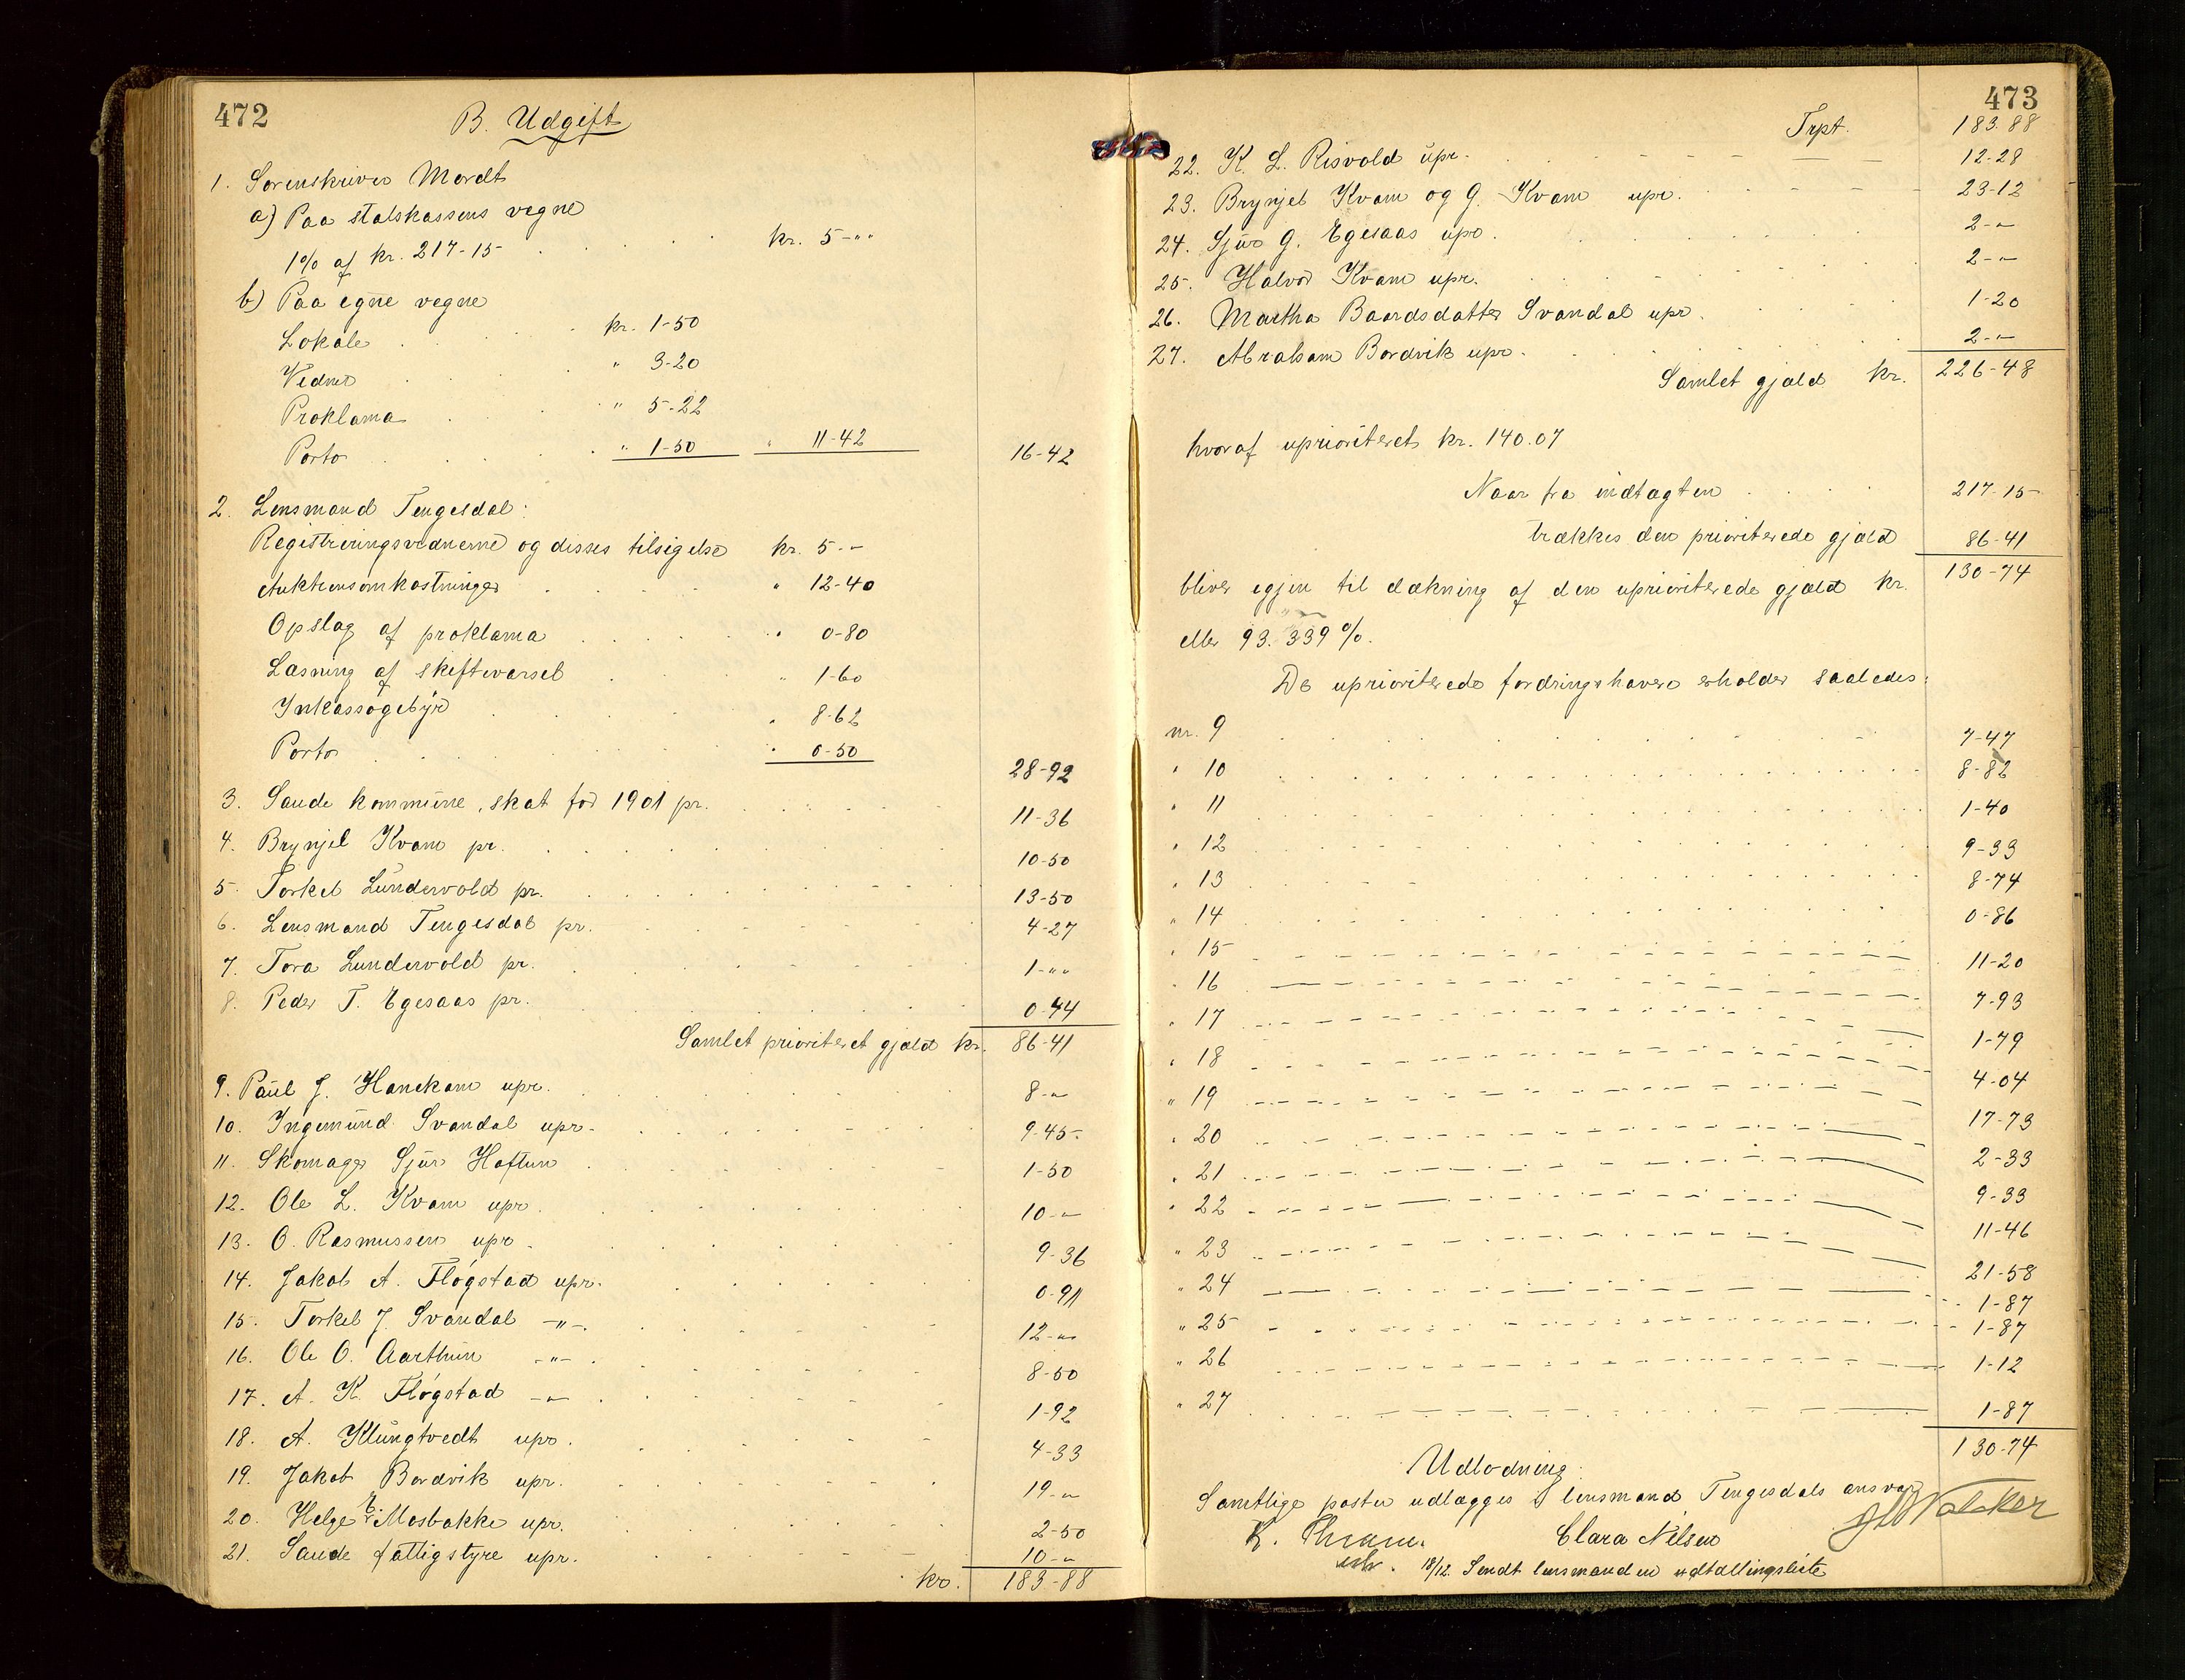 472
B. Udgift
1. Sorenskriver Mordt
a) Paa statskassens vegne
1% af kr. 217-15 kr. 5-""
b) Paa egne vegne
Lokale kr. 1-50
Vidner " 3-20
Proklama " 5-22
Porto " 1-50 " 11-42 16-42
2. Lensmand Tengesdal:
Registreringsvidnerne og disses tilsigelse kr. 5--
Auktionsomkostninger " 12-40
Opslag af proklama " 0-80
Læsning af skiftevarsel " 1-60
Inkassogebyr " 8-62
Porto " 0-50 28-92
3. Saude kommune, skat for 1901 pr. 11-36
4. Brynjel Kvam pr. 10-50
5. Torkel Lundervold pr. 13-50
6. Lensmand Tengesdal pr. 4-27
7. Tora Lundervold pr. 1-""
8. Peder T. Egesaas pr. 0-44
Samlet prioriteret gjæld kr. 86-41
9. Paul J. Hanekam upr. 8-"
10. Ingemund Svandal upr. 9-45
11. Skomager Sjur Hoftun 1-50
12. Ole L. Kvam upr. 10-"
13. O. Rasmussen upr. 9-36
14. Jakob A. Fløgstad upr. 0-91
15. Torkel J. Svandal -"- 12-""
16. Ole O. Aarthun -"- 8-50
17. A. K. Fløgstad -"- 1-92
18. A. Klungtvedt upr. 4-33
19. Jakob Bordvik upr. 19-"
20. Helge Mosbakke upr. 2-50
21. Saude fattigstyre upr. 10-"
kr. 183-88
473
Trpt. 183.88
22. K. L. Risvold upr. 12-28
23. Brynjel Kvam og G. Kvam upr. 23-12
24. Sjur G. Egesaas upr. 2-"
25. Halvor Kvam upr. 2-"
26. Martha Baardsdatter Svandal upr. 1-20
27. Abraham Bordvik upr. 2-"
Samlet gjæld kr. 226-48
hvoraf uprioriteret kr. 140.07
Naar fra indtægten 217-15
trækkes den prioriterede gjæld 86-41
bliver igjen til dækning af den uprioriterede gjæld kr. 130-74
eller 93.339 %.
De uprioriterede fordringshavere erholder saaledes:
nr. 9 7-47
" 10 8-82
" 11 1-40
" 12 9-33
" 13 8-74
" 14 0-86
" 15 11-20
" 16 7-93
" 17 1-79
" 18 4-04
" 19 17-73
" 20 2-33
" 21 9-33
" 22 11-46
" 23 21-58
" 24 1-87
" 25 1-87
" 26 1-12
" 27 1-87
130-74
Udlodning:
Samtlige poster udlægges i lensmand Tengesdals ansvar
Clara Nilsen
18/12. Sendt lensmanden udtællingsliste